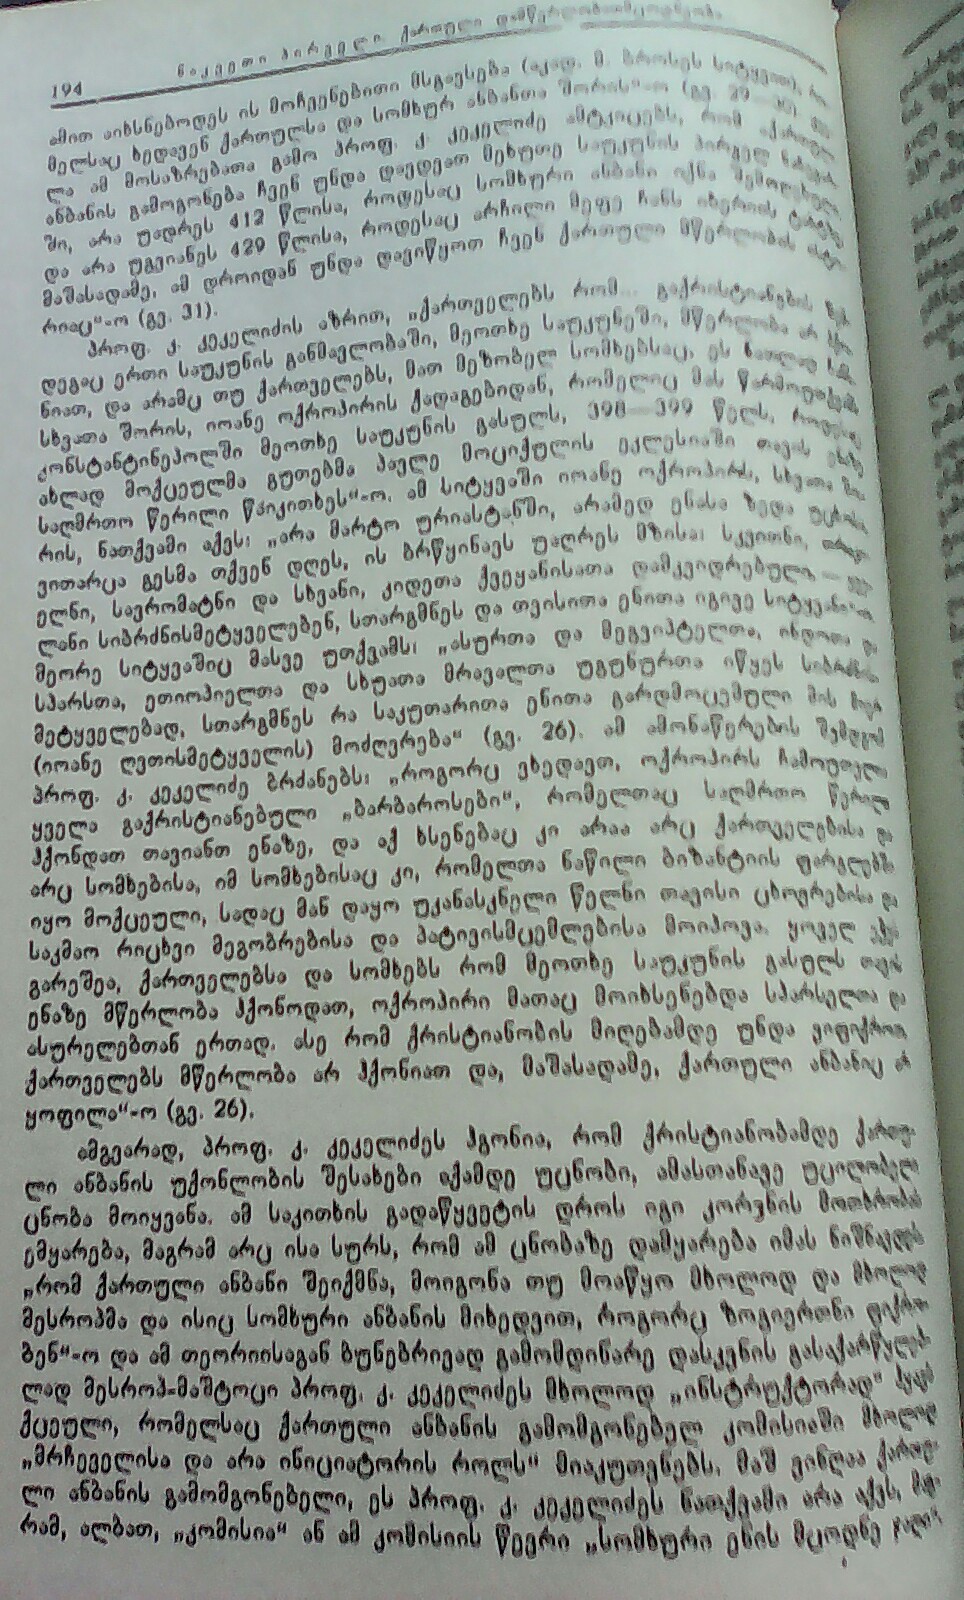 194 ნაკვეთი პირველი ქართული დამწერლობათმცოდნეობა
ამით აიხსნებოდეს ის მოჩვენებითი მსგავსება (აკად. მ. ბროსეს სიტყვით),
მელსაც ხედავენ ქართულსა და სომხურ ანბანთა შორის“-ო (გვ. 29
ლა ამ მოსაზრებათა გამო პროფ. კ. კეკელიძე ამტკიცებს, რომ „ქართულ
ანბანის გამოგონება ჩვენ უნდა დავდვათ მეხუთე საუკუნის პირველ
ში, არა უადრეს 412 წლისა, როდესაც სომხური ანბანი იქნა შემოღებული,
და არა უგვიანეს 429 წლისა, როდესაც არჩილი მეფე ჩანს იბერიის
მაშასადამე, ამ დროიდან უნდა დავიწყოთ ჩვენ ქართული მწერლობის ისტო
რიაც“-ო (გვ. 31).
პროფ. კ. კეკელიძის აზრით, „ქართველებს რომ... გაქრისტიანების
დეგაც ერთი საუკუნის განმავლობაში, მეოთხე საუკუნეში, მწერლობა არ
ნიათ, და არამც თუ ქართველებს, მათ მეზობელ სომხებსაც, ეს ნათლად
სხვათა შორის, იოანე ოქროპირის ქადაგებიდან, რომელიც მას წარმოუთქვამს
კონსტანტინეპოლში მეოთხე საუკუნის გასულს, 398—399 წელს, როდესაც
ახლად მოქცეულმა გუთებმა პავლე მოციქულის ეკლესიაში თავის ენაზე
საღმრთო წერილი წაიკითხეს“-ო. ამ სიტყვაში იოანე ოქროპირს, სხვათა შო
რის, ნათქვამი აქვს: „არა მარტო ურიასტანში, არამედ ენასა ზედა
ვითარცა გესმა თქვენ დღეს, ის ბრწყინავს უაღრეს მზისა: სკვითნი,
ელნი, სავრომატნი და სხვანი, კიდეთა ქვეყანისათა დამკვიდრებულ
ლანი სიბრძნისმეტყველებენ, სთარგმნეს და თვისითა ენითა იგივე
მეორე სიტყვაშიც მასვე უთქვამს: „ასურთა და მეგვიპტელთა, ინდოთა და
სპარსთა, ეთიოპიელთა და სხუათა მრავალთა უგუნურთა იწყეს
მეტყველებად, სთარგმნეს რა საკუთარითა ენითა გარდმოცემული მის მიერ
(იოანე ღვთისმეტყველის) მოძღვრება“ (გვ. 26). ამ ამონაწერების შემდეგ
პროფ. კ. კეკელიძე ბრძანებს: „როგორც ვხედავთ, ოქროპირს ჩამოუთვლია
ყველა გაქრისტიანებული „ბარბაროსები“, რომელთაც საღმრთო წერილი
ჰქონდათ თავიანთ ენაზე, და აქ ხსენებაც კი არაა არც ქართველებისა და
არც სომხებისა, იმ სომხებისაც კი, რომელთა ნაწილი ბიზანტიის ფარგლებში
იყო მოქცეული, სადაც მან დაყო უკანასკნელი წელნი თავისი ცხოვრებისა და
საკმაო რიცხვი მეგობრებისა და პატივისმცემლებისა მოიპოვა. ყოველ
გარეშეა, ქართველებსა და სომხებს რომ მეოთხე საუკუნის გასულს თავის
ენაზე მწერლობა ჰქონოდათ, ოქროპირი მათაც მოიხსენებდა სპარსელთა და
ასურელებთან ერთად. ასე რომ ქრისტიანობის მიღებამდე უნდა ვიფიქროთ,
ქართველებს მწერლობა არ ჰქონიათ და, მაშასადამე, ქართული ანბანიც არ
ყოფილა“-ო (გვ. 26).
ამგვარად, პროფ. კ. კეკელიძეს ჰგონია, რომ ქრისტიანობამდე ქართუ-
ლი ანბანის უქონლობის შესახები აქამდე უცნობი, ამასთანავე უცილობელი
ცნობა მოიყვანა. ამ საკითხის გადაწყვეტის დროს იგი კორჳნის მოთხრობას
ემყარება, მაგრამ არც ისა სურს, რომ ამ ცნობაზე დამყარება იმას ნიშნავდეს
„რომ ქართული ანბანი შეიქმნა, მოიგონა თუ მოაწყო მხოლოდ და მხოლოდ
მესროპმა და ისიც სომხური ანბანის მიხედვით, როგორც ზოგიერთნი ფიქრო
ბენ“-ო და ამ თეორიისაგან ბუნებრივად გამომდინარე დასკვნის გასაქარწყლებ
ლად მესროპ-მაშტოცი პროფ. კ. კეკელიძეს მხოლოდ „ინსტრუქტორად“ ჰყავს
ქცეული, რომელსაც ქართული ანბანის გამომგონებელ კომისიაში მხოლოდ
„მრჩეველისა და არა ინიციატორის როლს“ მიაკუთვნებს. მაშ ვინღაა ქართუ-
ლი ანბანის გამომგონებელი, ეს პროფ. კ. კეკელიძეს ნათქვამი არა აქვს, მაგ-
რამ, ალბათ, „კომისია“ ან ამ კომისიის წევრი „სომხური ენის მცოდნე